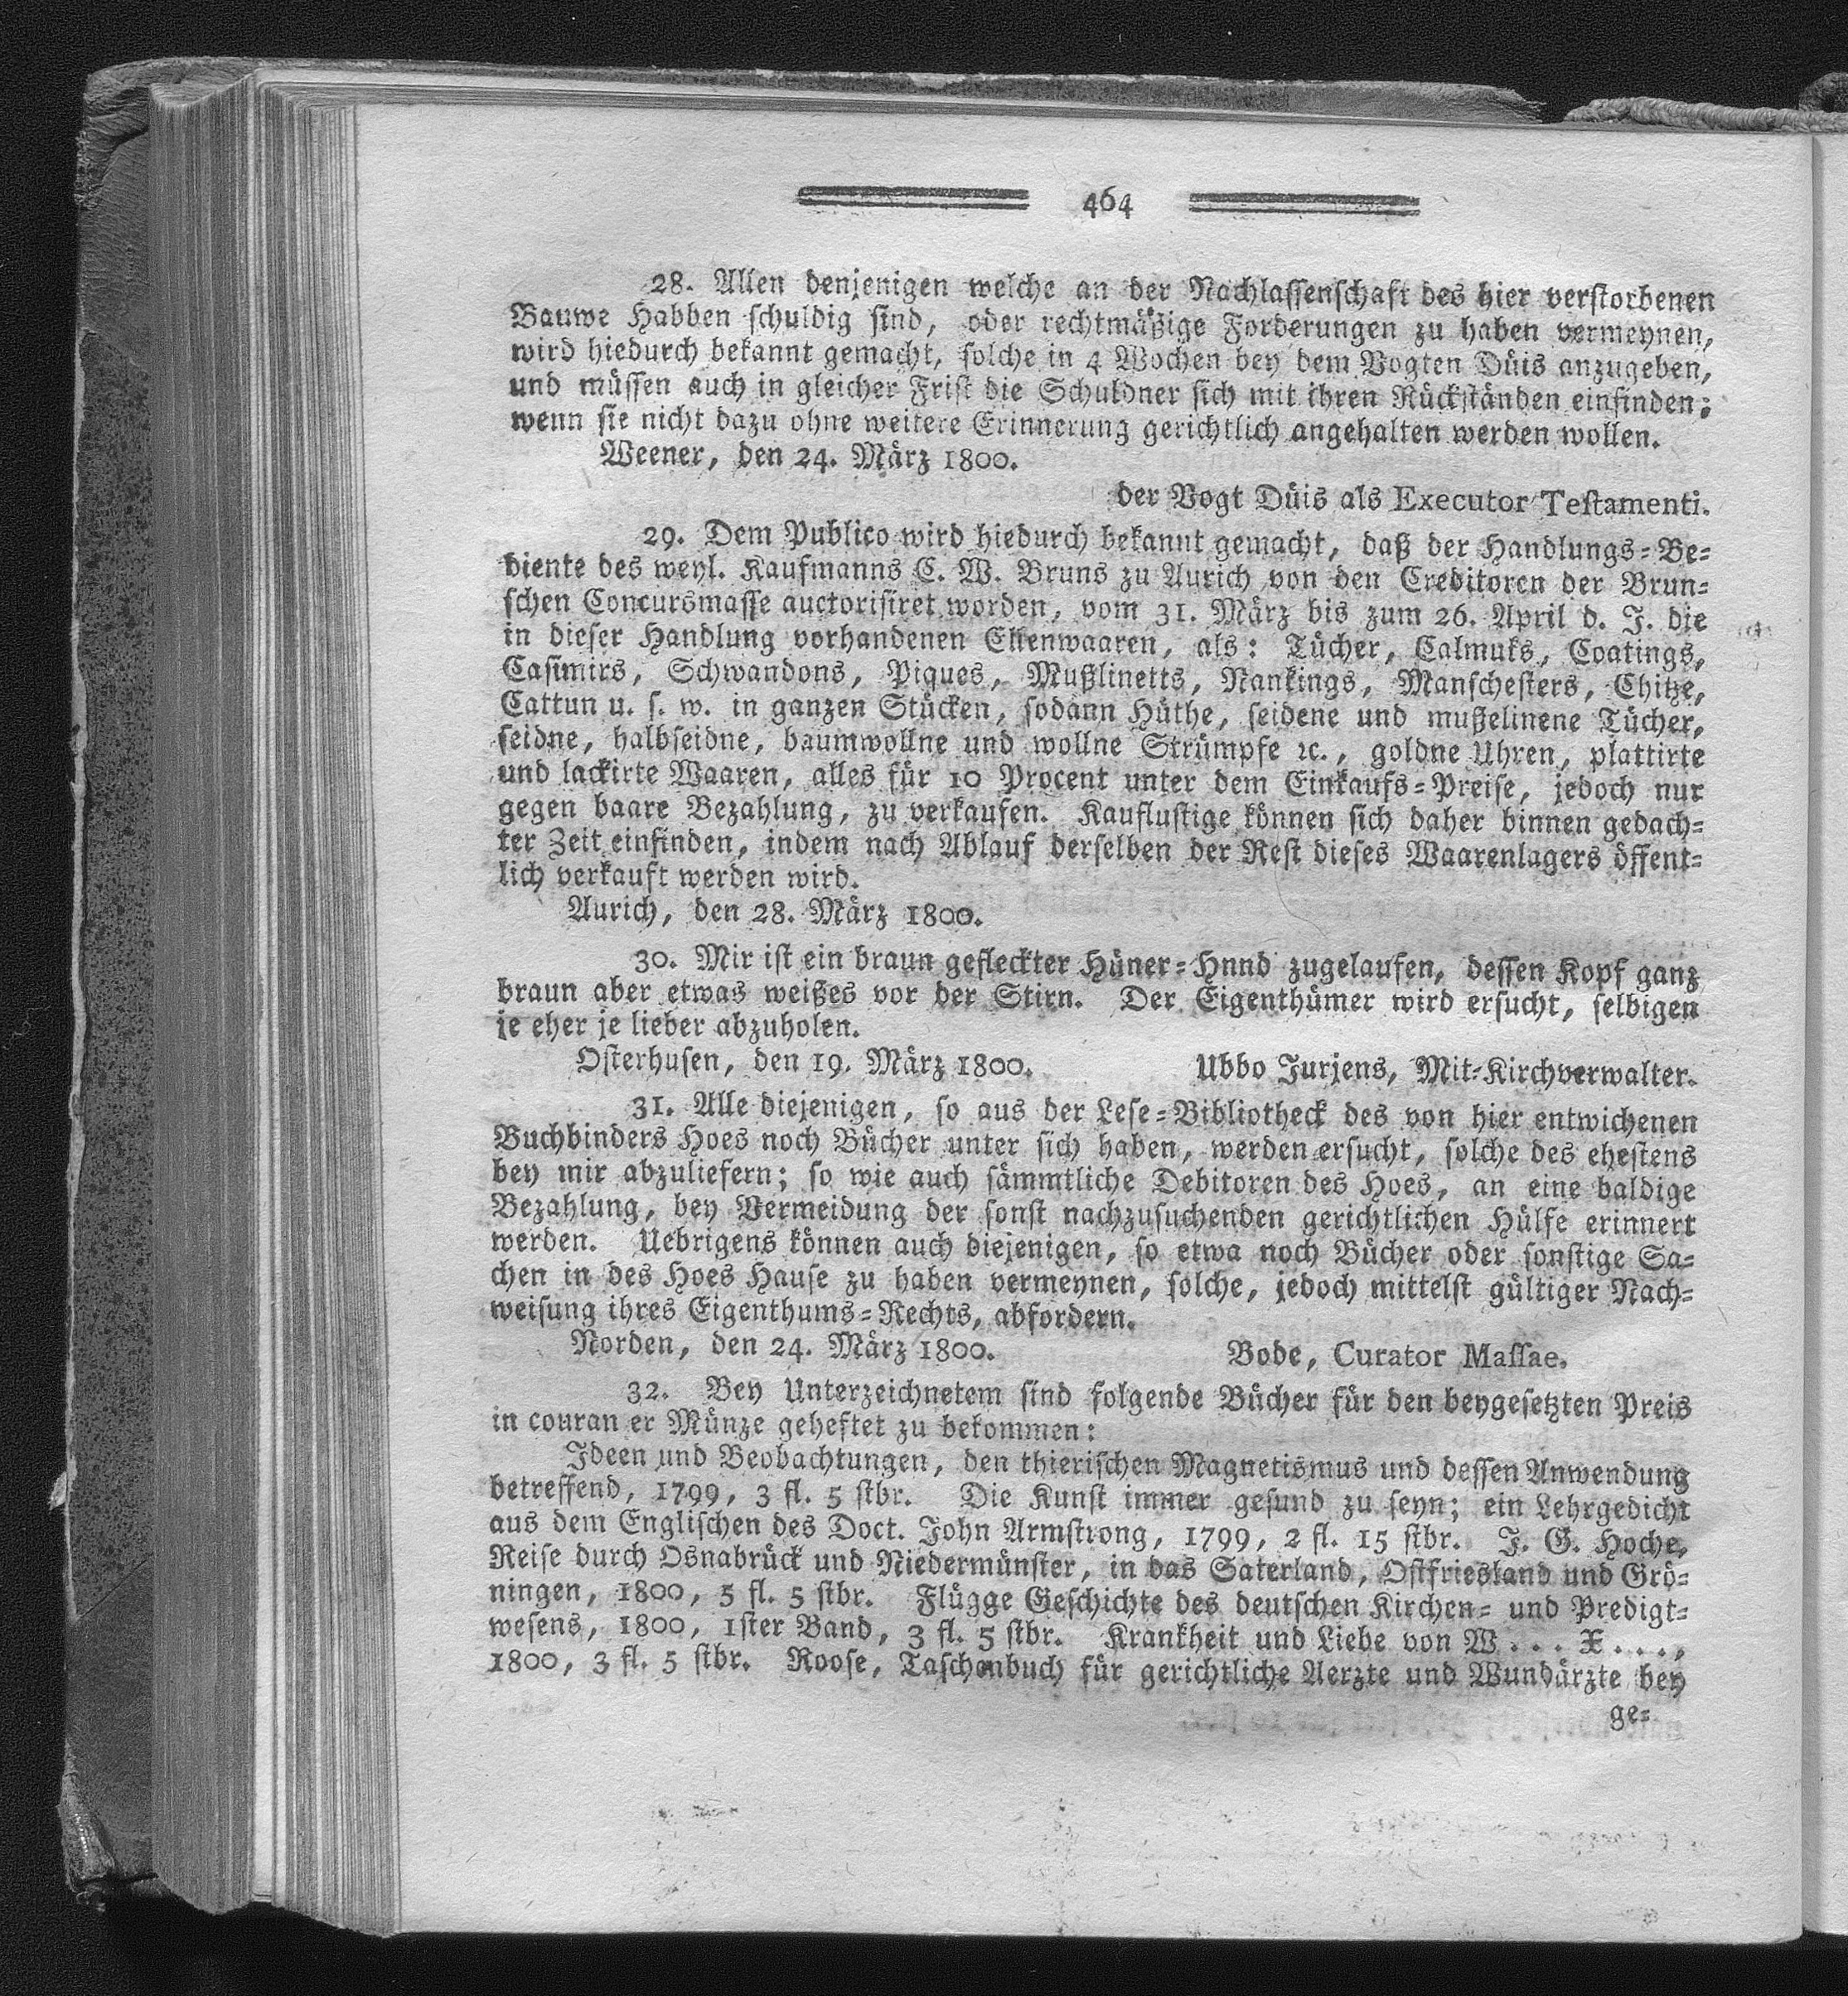 464
28. Allen denjenigen welche an der Nachlassenschaft des hier verstorbenen
Bauwe Habben schuldig sind, oder rechtmäßige Forderungen zu haben vermeynen,
wird hiedurch bekannt gemacht, solche in 4 Wochen bey dem Vogten Düis anzugeben,
und müssen auch in gleicher Frist die Schuldner sich mit ihren Rückständen einfinden;
wenn sie nicht dazu ohne weitere Erinnerung gerichtlich angehalten werden wollen.
Weener, den 24. März 1800.
der Vogt Düis als Executor Testamenti.
29. Dem Publico wird hiedurch bekannt gemacht, daß der Handlungs=Be=
diente des weyl. Kaufmanns C. W. Bruns zu Aurich von den Creditoren der Brun=
schen Concursmasse auctorisiret worden, vom 31. März bis zum 26. April d. J. die
in dieser Handlung vorhandenen Ellenwaaren, als: Tücher, Calmuks, Coatings,
Casimirs, Schwandons, Piques, Mußlinetts, Nankings, Manschesters, Chitze,
Cattun u. s. w. in ganzen Stücken, sodann Hüthe, seidene und mußelinene Tücher,
seidne, halbseidne, baumwollne und wollne Strümpfe ꝛc., goldne Uhren, plattirte
und lackirte Waaren, alles für 10 Procent unter dem Einkaufs=Preise, jedoch nur
gegen baare Bezahlung, zu verkaufen. Kauflustige können sich daher binnen gedach=
ter Zeit einfinden, indem nach Ablauf derselben der Rest dieses Waarenlagers öffent=
lich verkauft werden wird.
Aurich, den 28. März 1800.
30. Mir ist ein braun gefleckter Hüner=Hnnd zugelaufen, dessen Kopf ganz
braun aber etwas weißes vor der Stirn. Der Eigenthümer wird ersucht, selbigen
je eher je lieber abzuholen.
Osterhusen, den 19. März 1800. Ubbo Jurjens, Mit=Kirchverwalter.
31. Alle diejenigen, so aus der Lese=Bibliotheck des von hier entwichenen
Buchbinders Hoes noch Bücher unter sich haben, werden ersucht, solche des ehestens
bey mir abzuliefern; so wie auch sämmtliche Debitoren des Hoes, an eine baldige
Bezahlung, bey Vermeidung der sonst nachzusuchenden gerichtlichen Hülfe erinnert
werden. Uebrigens können auch diejenigen, so etwa noch Bücher oder sonstige Sa=
chen in des Hoes Hause zu haben vermeynen, solche, jedoch mittelst gültiger Nach=
weisung ihres Eigenthums=Rechts, abfordern.
Norden, den 24. März 1800. Bode, Curator Massae.
32. Bey Unterzeichnetem sind folgende Bücher für den beygesetzten Preis
in couran er Münze geheftet zu bekommen:
Ideen und Beobachtungen, den thierischen Magnetismus und dessen Anwendung
betreffend, 1799, 3 fl. 5 stbr. Die Kunst immer gesund zu seyn; ein Lehrgedicht
aus dem Englischen des Doct. John Armstrong, 1799, 2 fl. 15 stbr. J. G. Hoche,
Reise durch Osnabrück und Niedermünster, in das Saterland, Ostfriesland und Grö=
ningen, 1800, 5 fl. 5 stbr. Flügge Geschichte des deutschen Kirchen= und Predigt=
wesens, 1800, 1ster Band, 3 fl. 5 stbr. Krankheit und Liebe von W... X....,
1800, 3 fl. 5 stbr. Roose, Taschenbuch für gerichtliche Aerzte und Wundärzte bey
ge=